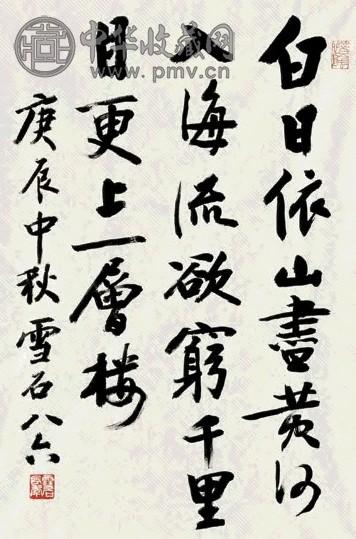 白日依山盡黄河
入海流欲窮千里
目更上一層楼
庚辰中秋雪石八六
中华收藏网
www.pmv.cn